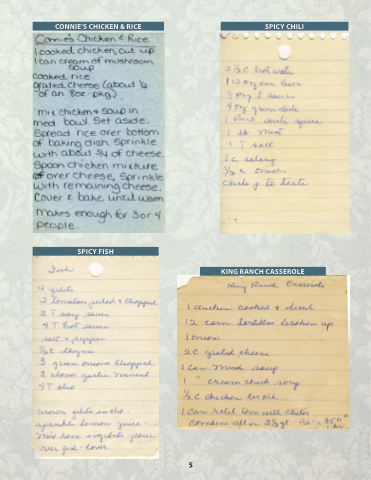 CONNIE'S CHICKEN & RICE
Connie's Chicken & Rice
1 cooked chicken, cut up
1 can cream of mushroom
soup
cooked rice
grated cheese (about ½
of an 8oz pkg)
mix chicken & soup in
med bowl. Set aside.
Spread rice over bottom
of baking dish. Sprinkle
with about ¾ of cheese.
Spoon chicken mixture
over cheese, Sprinkle
with remaining cheese.
Cover & bake until warm
makes enough for 3 or 4
people.
SPICY CHILI
2½ C hot water
1 12 oz can beer
8 oz t sauce
4 oz green
1
1 lb meat
1 T salt
1 c celery
½ c onion
Chili p to taste
SPICY FISH
Fish
4 filets
2 tomatoes peeled & chopped
2 T soy sauce
4 T hot sauce
salt & pepper
½ t. thyme
3 green onions chopped
2 cloves garlic minced
4 T oleo
Arrange filets in dish -
sprinkle lemon juice -
mix rest ingredients - pour
over fish - cover
KING RANCH CASSEROLE
King Ranch Casserole
1 chicken cooked & diced
12 corn tortillas broken up
1 onion
2 C grated cheese
1 can mush soup
1 " cream chick soup
½ C chicken broth
1 can rotel tom with chiles
Combine all in 2½ qt - Ba - 350°
1 hr
5